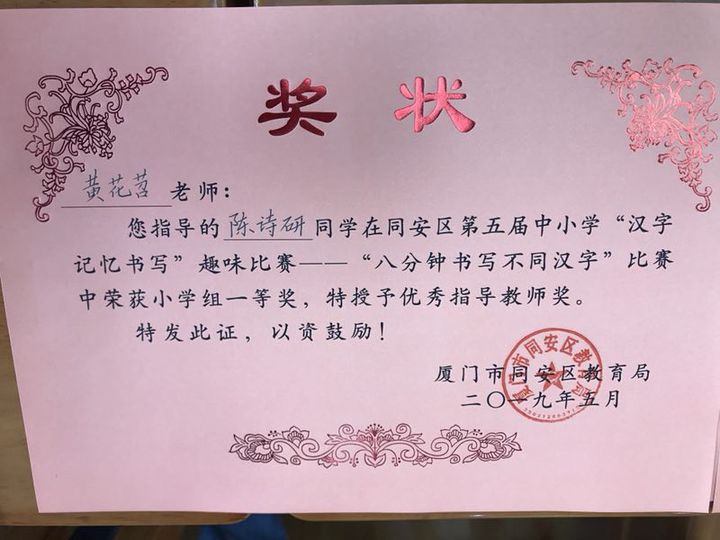 奖状
黄花萏老师：
您指导的陈诗研同学在同安区第五届中小学“汉字
记忆书写”趣味比赛——“八分钟书写不同汉字”比赛
中荣获小学组一等奖，特授予优秀指导教师奖。
特发此证，以资鼓励！
厦门市同安区教育局
二〇一九年五月
厦门市同安区教育局